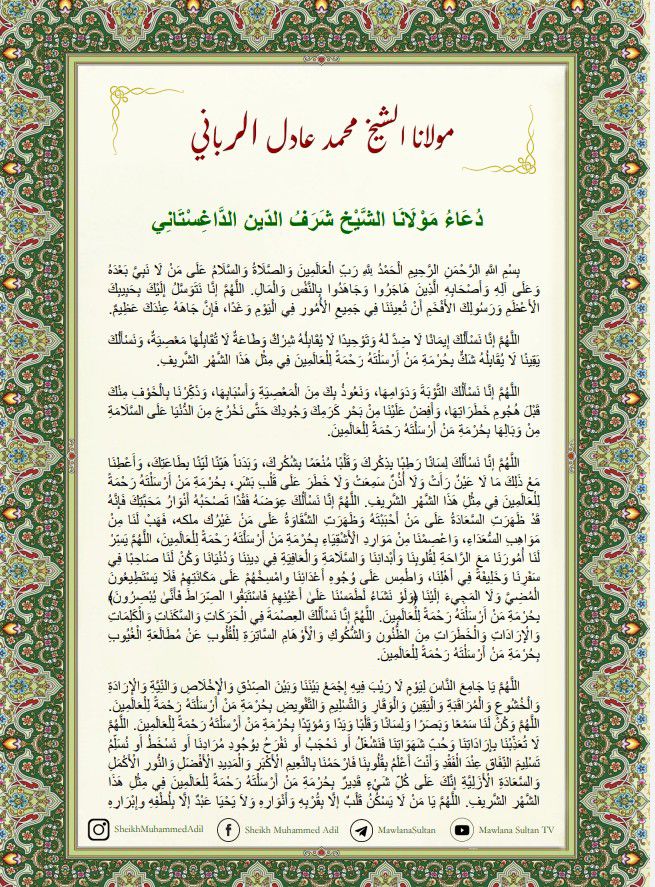 مولانا الشيخ محمد عادل الرباني
دُعَاءُ مَوْلَانَا الشَّيْخ شَرَفُ الدّين الدَّاغِسْتَانِي
بِسْمِ اللَّهِ الرَّحْمَنِ الرَّحِيمِ الْحَمْدُ لِلَّهِ رَبِّ الْعَالَمِينَ وَالصَّلَاةُ وَالسَّلَامُ عَلَى مَنْ لَا نَبِيَّ بَعْدَهُ
وَعَلَى آلِهِ وَأَصْحَابِهِ الَّذِينَ هَاجَرُوا وَجَاهَدُوا بِالنَّفْسِ وَالْمَالِ. اللَّهُمَّ إِنَّا نَتَوَسَّلُ إِلَيْكَ بِحَبِيبِكَ
الْأَعْظَمِ وَرَسُولِكَ الأَفْخَمِ أَنْ تُعِينَنَا فِي جَمِيعِ الأُمُورِ فِي الْيَوْمِ وَغَدًا، فَإِنَّ جَاهَهُ عِنْدَكَ عَظِيمٌ.
اللَّهُمَّ إِنَّا نَسْأَلُكَ إِيمَانًا لَا ضِدَّ لَهُ وَتَوْحِيدًا لَا يُقَابِلُهُ شِرْكٌ وَطَاعَةً لَا تُقَابِلُهَا مَعْصِيَةٌ، وَنَسْأَلُكَ
يَقِينًا لَا يُقَابِلُهُ شَكٌّ بِحُرْمَةِ مَنْ أَرْسَلْتَهُ رَحْمَةً لِلْعَالَمِينَ فِي مِثْلِ هَذَا الشَّهْرِ الشَّرِيفِ.
اللَّهُمَّ إِنَّا نَسْأَلُكَ التَّوْبَةَ وَدَوَامِهَا، وَنَعُوذُ بِكَ مِنَ الْمَعْصِيَةِ وَأَسْبَابِهَا، وَذَكِّرْنَا بِالْخَوْفِ مِنْكَ
قَبْلَ هُجُومِ خَطَرَاتِهَا، وَأَفِضْ عَلَيْنَا مِنْ بَحْرِ كَرَمِكَ وَجُودِكَ حَتَّى نَخْرُجَ مِنَ الدُّنْيَا عَلَى السَّلَامَةِ
مِنْ وَبَالِهَا بِحُرْمَةِ مَنْ أَرْسَلْتَهُ رَحْمَةً لِلْعَالَمِينَ.
اللَّهُمَّ إِنَّا نَسْأَلُكَ لِسَانًا رَطِبًا بِذِكْرِكَ وَقَلْبًا مُنْعَمًا بِشُكْرِكَ، وَبَدَناً هَيِّنًا لَيِّنًا بِطَاعَتِكَ، وَأَعْطِنَا
مَعَ ذَلِكَ مَا لَا عَيْنٌ رَأَتْ وَلَا أُذُنٌ سَمِعَتْ وَلَا خَطَرَ عَلَى قَلْبِ بَشَرٍ، بِحُرْمَةِ مَنْ أَرْسَلْتَهُ رَحْمَةً
لِلْعَالَمِينَ فِي مِثْلِ هَذَا الشَّهْرِ الشَّرِيفِ. اللَّهُمَّ إِنَّا نَسْأَلُكَ عِوَضَهُ فَقْدًا تَصْحَبُهُ أَنْوَارُ مَحَبَّتِكَ فَإِنَّهُ
قَدْ ظَهَرَتِ السَّعَادَةُ عَلَى مَنْ أَحْبَبْتَهُ وَظَهَرَتِ الشَّقَاوَةُ عَلَى مَنْ غَيْرُكَ ملكه، فَهَبْ لَنَا مِنْ
مَوَاهِبِ السُّعَدَاءِ، وَاعْصِمْنَا مِنْ مَوَارِدِ الْأَشْقِيَاءِ بِحُرْمَةِ مَنْ أَرْسَلْتَهُ رَحْمَةً لِلْعَالَمِينَ، اللَّهُمَّ يَسِّرْ
لَنَا أُمُورَنَا مَعَ الرَّاحَةِ لِقُلُوبِنَا وَأَبْدَانِنَا وَالسَّلَامَةِ وَالْعَافِيَةِ فِي دِينِنَا وَدُنْيَانَا وَكُنْ لَنَا صَاحِبًا فِي
سَفَرِنَا وَخَلِيفَةً فِي أَهْلِنَا، وَاطْمِسْ عَلَى وُجُوهِ أَعْدَائِنَا وَامْسَخْهُمْ عَلَى مَكَانَتِهِمْ فَلَا يَسْتَطِيعُونَ
الْمُضِيَّ وَلَا الْمَجِيءَ اِلَيْنَا ﴿وَلَوْ نَشَاءُ لَطَمَسْنَا عَلَى أَعْيُنِهِمْ فَاسْتَبَقُوا الصِّرَاطَ فَأَنَّى يُبْصِرُونَ﴾
بِحُرْمَةِ مَنْ أَرْسَلْتَهُ رَحْمَةً لِلْعَالَمِينَ. اللَّهُمَّ إِنَّا نَسْأَلُكَ الْعِصْمَةَ فِي الْحَرَكَاتِ وَالسَّكَنَاتِ وَالْكَلِمَاتِ
وَالْإِرَادَاتِ وَالْخَطَرَاتِ مِنَ الظُّنُونِ وَالشُّكُوكِ وَالْأَوْهَامِ السَّاتِرَةِ لِلْقُلُوبِ عَنْ مُطَالَعَةِ الْغُيُوبِ
بِحُرْمَةِ مَنْ أَرْسَلْتَهُ رَحْمَةً لِلْعَالَمِينَ.
اللَّهُمَّ يَا جَامِعَ النَّاسَ لِيَوْمٍ لَا رَيْبَ فِيهِ إِجْمَعْ بَيْنَنَا وَبَيْنَ الصِّدْقِ وَالْإِخْلَاصِ وَالنِّيَّةِ وَالْإِرَادَةِ
وَالْخُشُوعِ وَالْمُرَاقَبَةِ وَالْيَقِينِ وَالْوَقَارِ وَالتَّسْلِيمِ وَالتَّفْوِيضِ بِحُرْمَةِ مَنْ أَرْسَلْتَهُ رَحْمَةً لِلْعَالَمِينَ.
اللَّهُمَّ وَكُنْ لَنَا سَمْعًا وَبَصَرًا وَلِسَانًا وَقَلْبًا وَيَدًا وَمُؤَيِّدًا بِحُرْمَةِ مَنْ أَرْسَلْتَهُ رَحْمَةً لِلْعَالَمِينَ. اللَّهُمَّ
لَا تُعَذِّبْنَا بِإِرَادَاتِنَا وَحُبِّ شَهَوَاتِنَا فَنَشْغَلُ أَو نَحْجَبُ أَو نَفْرَحُ بِوُجُودِ مُرَادِنَا أَو نَسْخَطُ أَو نُسَلِّمُ
تَسْلِيمَ النِّفَاقِ عِنْدَ الْفَقْدِ وَأَنْتَ أَعْلَمُ بِقُلُوبِنَا فَارْحَمْنَا بِالنَّعِيمِ الْأَكْبَرِ وَالْمَدِيدِ الْأَفْضَلِ وَالنُّورِ الْأَكْمَلِ
وَالسَّعَادَةِ الْأَزَلِيَّةِ إِنَّكَ عَلَى كُلِّ شَيْءٍ قَدِيرٌ بِحُرْمَةِ مَنْ أَرْسَلْتَهُ رَحْمَةً لِلْعَالَمِينَ فِي مِثْلِ هَذَا
الشَّهْرِ الشَّرِيفِ. اللَّهُمَّ يَا مَنْ لَا يَسْكُنُ قَلْبٌ إِلَّا بِقُرْبِهِ وَأَنْوَارِهِ وَلَا يَحْيَا عَبْدٌ إِلَّا بِلُطْفِهِ وَإِبْرَارِهِ
SheikhMuhammedAdil Sheikh Muhammed Adil MawlanaSultan Mawlana Sultan TV